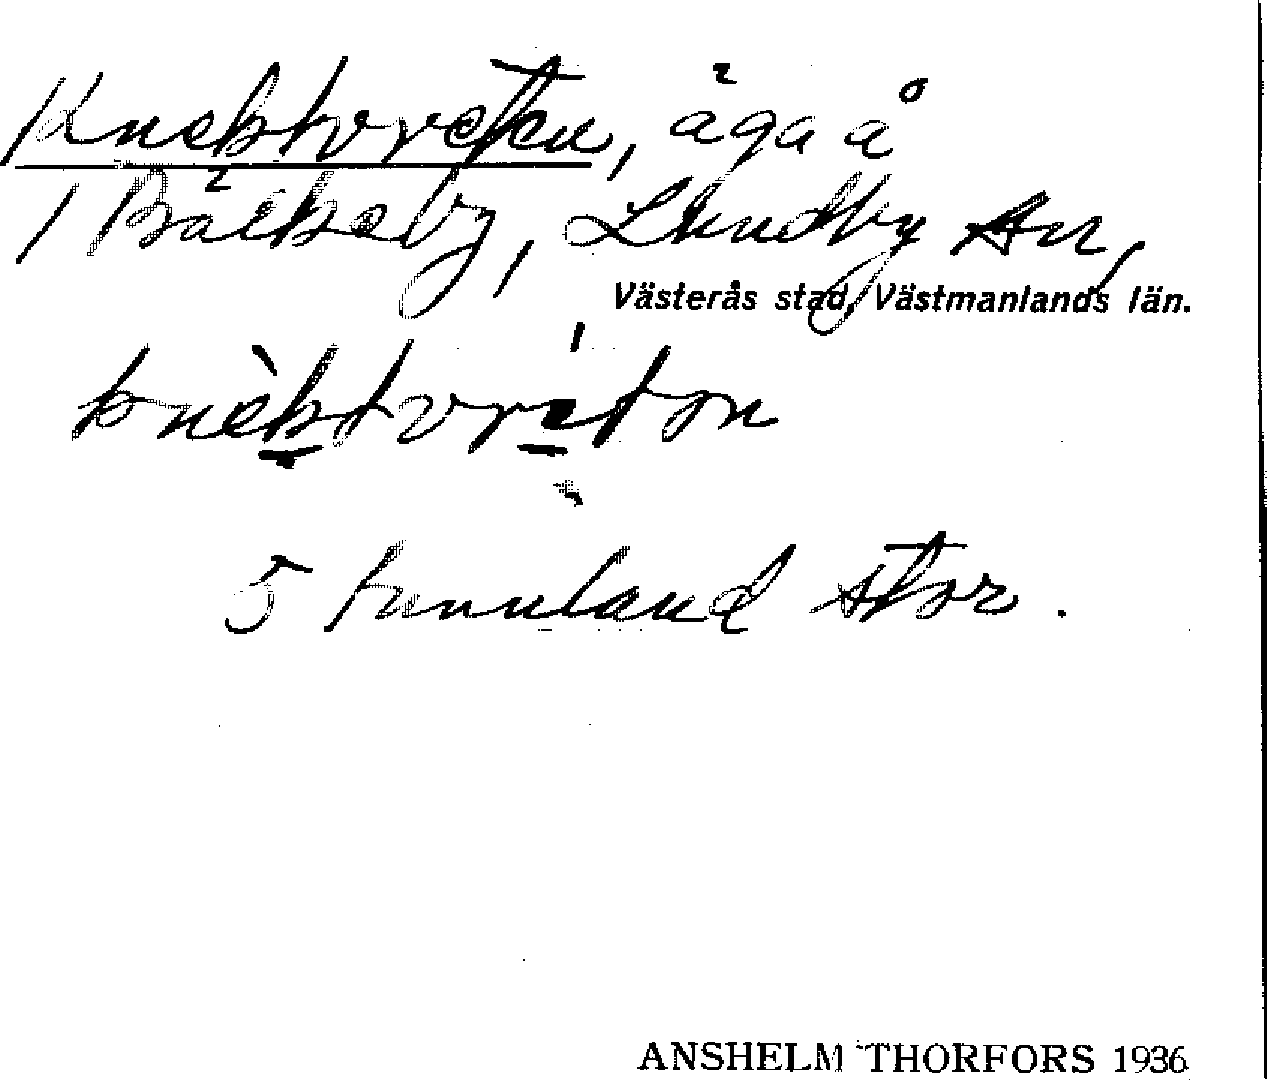 Knektvreten, äga å
1 Bäckeby, Lundby sn,
Västerås stad, Västmanlands län.
knèktvréton
5 tunnland stor.
ANSHELM THORFORS 1936